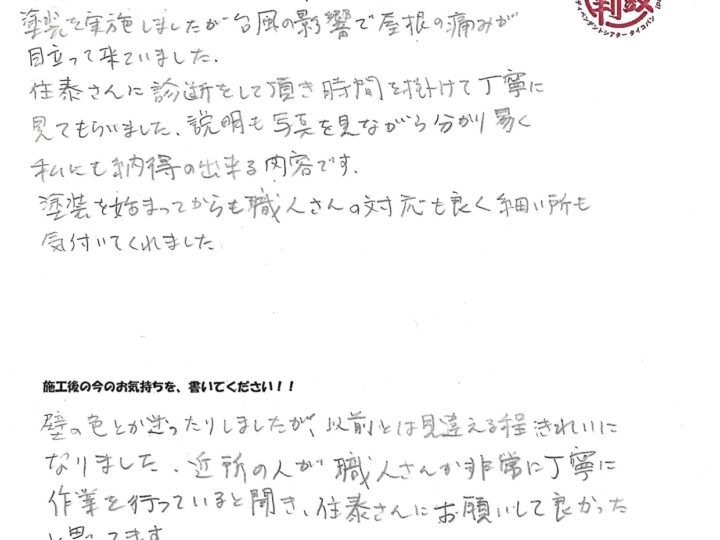 塗装を実施しましたが台風の影響で屋根の痛みが
目立って来ていました.
住泰さんに診断をして頂き時間を掛けて丁寧に
見てもらいました、説明も写真を見ながら分かり易く
私にも納得の出来る内容です.
塗装を始まってからも職人さんの対応も良く細い所も
気付いてくれました
施工後の今のお気持ちを、書いてください！！
壁の色とか迷ったりしましたが、以前とは見違える程きれいに
なりました、近所の人が職人さんが非常に丁寧に
作業を行っていると聞き、住泰さんにお願いして良かった
と思ってます